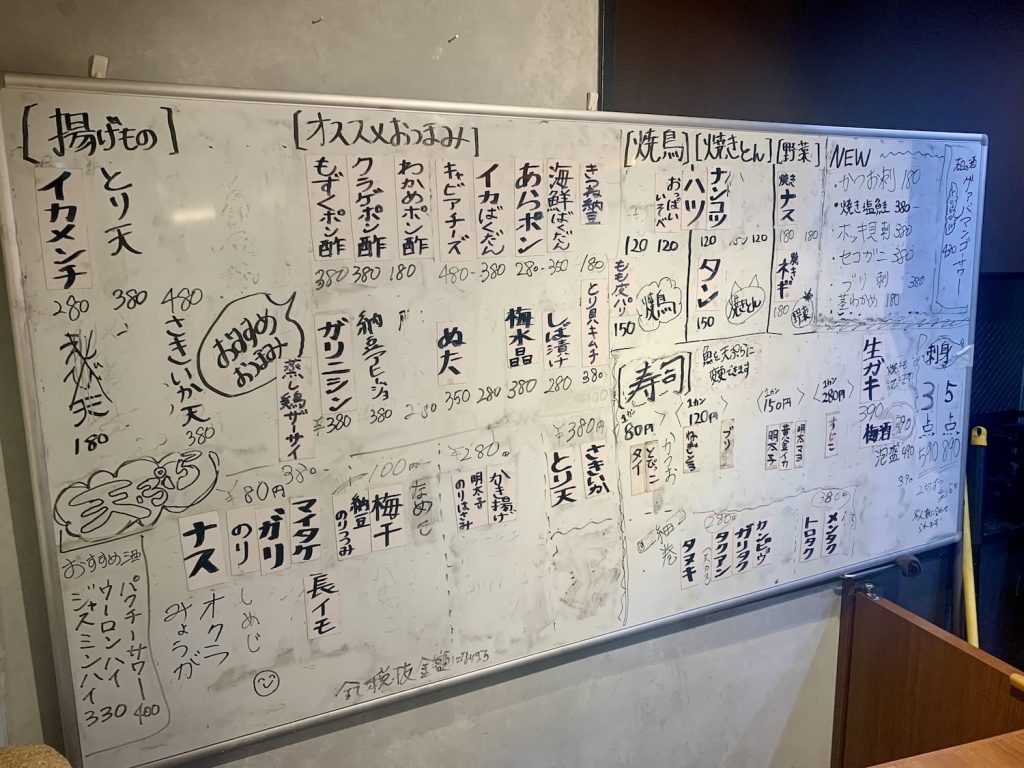 [揚げもの]
イカメンチ
280
とり天
380
さきいか天
480
380
180
[オススメおつまみ]
もずくポン酢
380
クラゲポン酢
380
わかめポン酢
180
キャビアチーズ
480-
イカばくだん
380
あらポン
280-
海鮮ばくだん
350
きつね納豆
180
おすすめ
おつまみ
蒸し鶏ザーサイ
380-
ガリニシン
¥380
納豆アヒージョ
380
ぬた
350
280
梅水晶
380
しば漬け
280
とり貝キムチ
380
[焼鳥]
ハツ
120
120
もも皮パリ
150
焼鳥
[焼きとん]
ナンコツ
120
120
タン
150
焼きとん
[野菜]
焼き
ナス
180
180
焼き
ネギ
180
野菜
NEW
・かつお刺 180
・焼き塩鮭 380-
・ホッキ貝刺 380
・セコガニ 380
・ブリ刺 380
茎わかめ 180
グァバマンゴーサワー
430
[寿司]
1カン
80円
タイ
とびっこ
かつお
1カン
120円
ブリ
1カン
150円
明太子
黄金イカ
明太マヨ
1カン
280円
すじこ
生ガキ
390
梅酒 390
泡盛 490
刺身
3点 590
5点 890
細巻
280円
タヌキ
タクアン
ガリタク
カンピョウ
380円
トロタク
メンタク
天ぷら
¥80円
ナス
のり
ガリ
マイタケ
長イモ
しめじ
オクラ
みょうが
100円
納豆
のりつつみ
梅干
なめこ
¥280円
明太子
のりはさみ
かき揚げ
¥380円
とり天
さきいか
おすすめ酒
パクチーサワー 400
ウーロンハイ
ジャスミンハイ 330
全て税抜金額になります